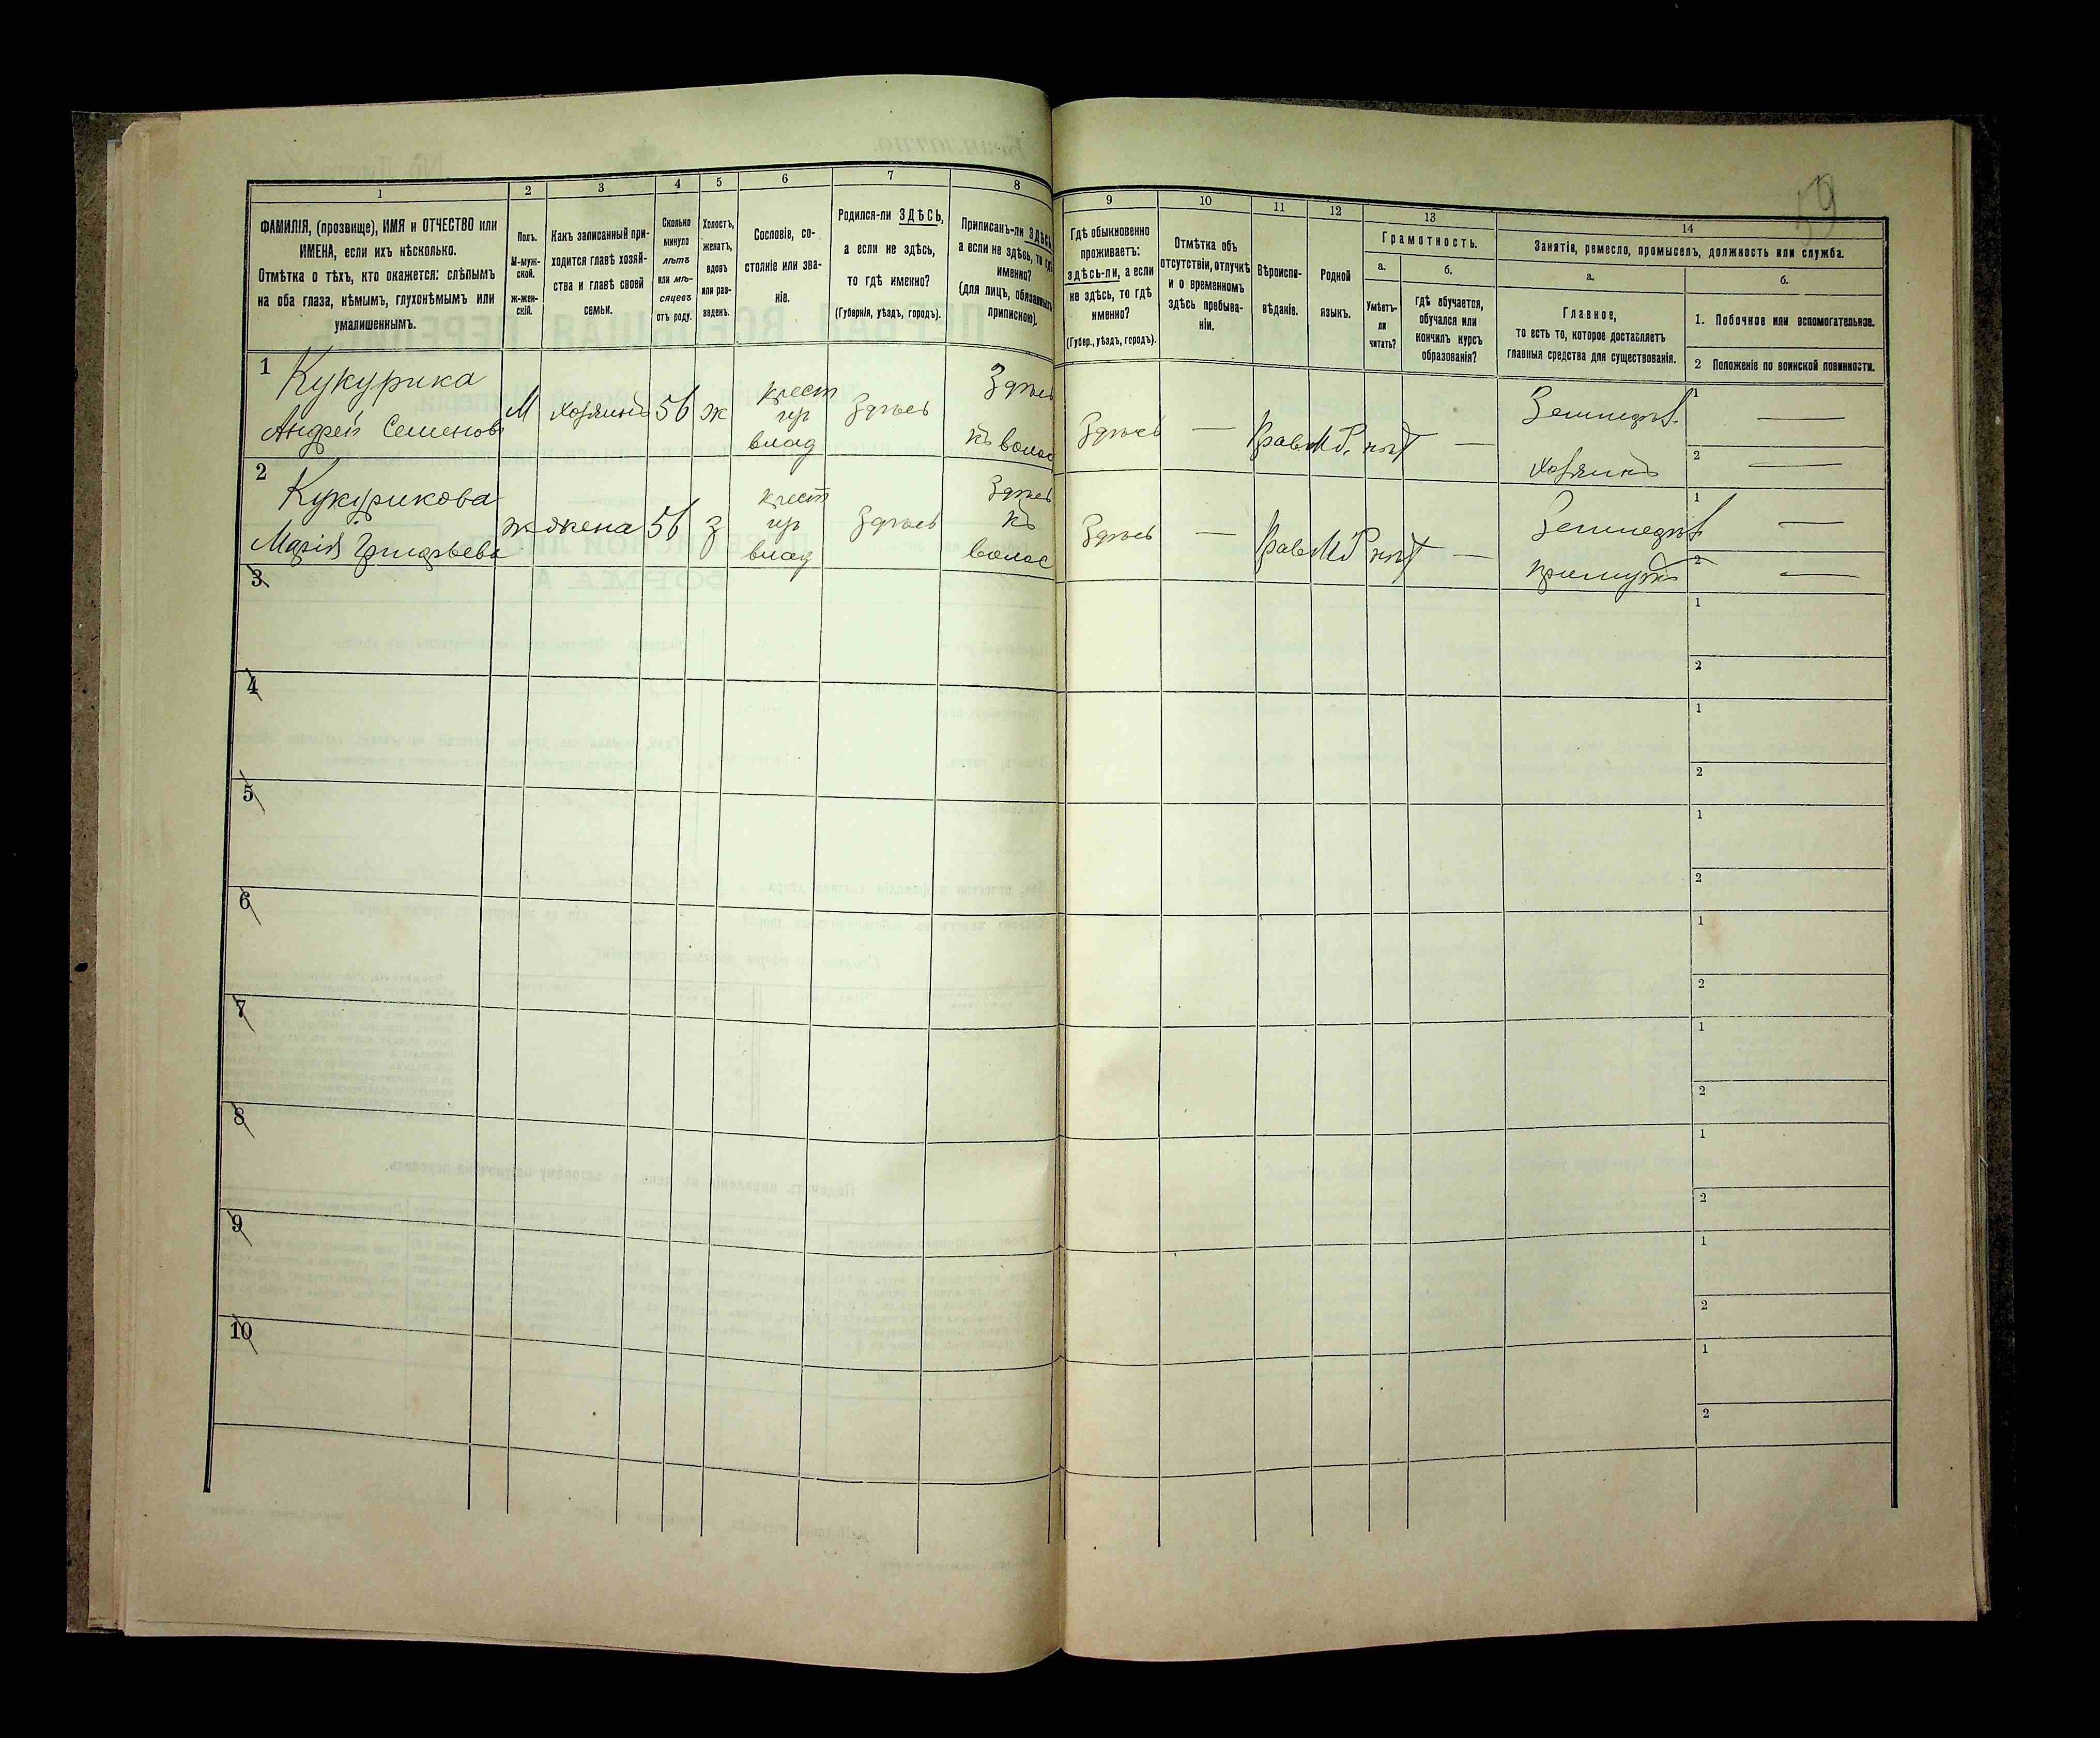 59
1 2 3 4 5 6 7 8
ФАМИЛІЯ, (прозвище), ИМЯ и ОТЧЕСТВО или
ИМЕНА, если ихъ нѣсколько.
Отмѣтка о тѣхъ, кто окажется: слѣпымъ
на оба глаза, нѣмымъ, глухонѣмымъ или
умалишеннымъ.
Полъ.
М-муж-
ской.
ж-жен-
скій.
Какъ записанный при-
ходится главѣ хозяй-
ства и главѣ своей
семьи.
Сколько
минуло
лѣтъ
или мѣ-
сяцевъ
отъ роду.
Холостъ,
женатъ,
вдовъ
или раз-
веденъ.
Сословіе, со-
стояніе или зва-
ніе.
Родился-ли ЗДѢСЬ,
а если не здѣсь,
то гдѣ именно?
(Губернія, уѣздъ, городъ).
Приписанъ-ли ЗДѢСЬ,
а если не здѣсь, то гдѣ
именно?
(для лицъ, обязанныхъ
припискою).
9 10 11 12 13 14
Гдѣ обыкновенно
проживаетъ:
здѣсь-ли, а если
не здѣсь, то гдѣ
именно?
(Губер., уѣздъ, городъ).
Отмѣтка объ
отсутствіи, отлучкѣ
и о временномъ
здѣсь пребыва-
ніи.
Вѣроиспо-
вѣданіе.
Родной
языкъ.
Грамотность.
а.
Умѣетъ-
ли
читать?
б.
гдѣ обучается,
обучался или
кончилъ курсъ
образованія?
Занятія, ремесло, промыселъ, должность или служба.
а.
Главное,
то есть то, которое доставляетъ
главныя средства для существованія.
б.
1. Побочное или вспомогательное.
2 Положеніе по воинской повинности.
1 Кукурика
Андрей Семеновъ
М хозяинъ 56 ж
крест
влад
Здѣсь
Здѣсь
къ волос
Здѣсь — Правос М.Р. нѣт —
Земледѣл.
Хозяинъ
1 —
2 —
2 Кукурикова
Марія Григорьева
ж жена 56 з
крест
влад
Здѣсь
Здѣсь
къ
волос
Здѣсь — Правос М.Р. нѣт —
Земледѣл
1 —
2 —
3
1
2
4
1
2
5
1
2
6
1
2
7
1
2
8
1
2
9
1
2
10
1
2